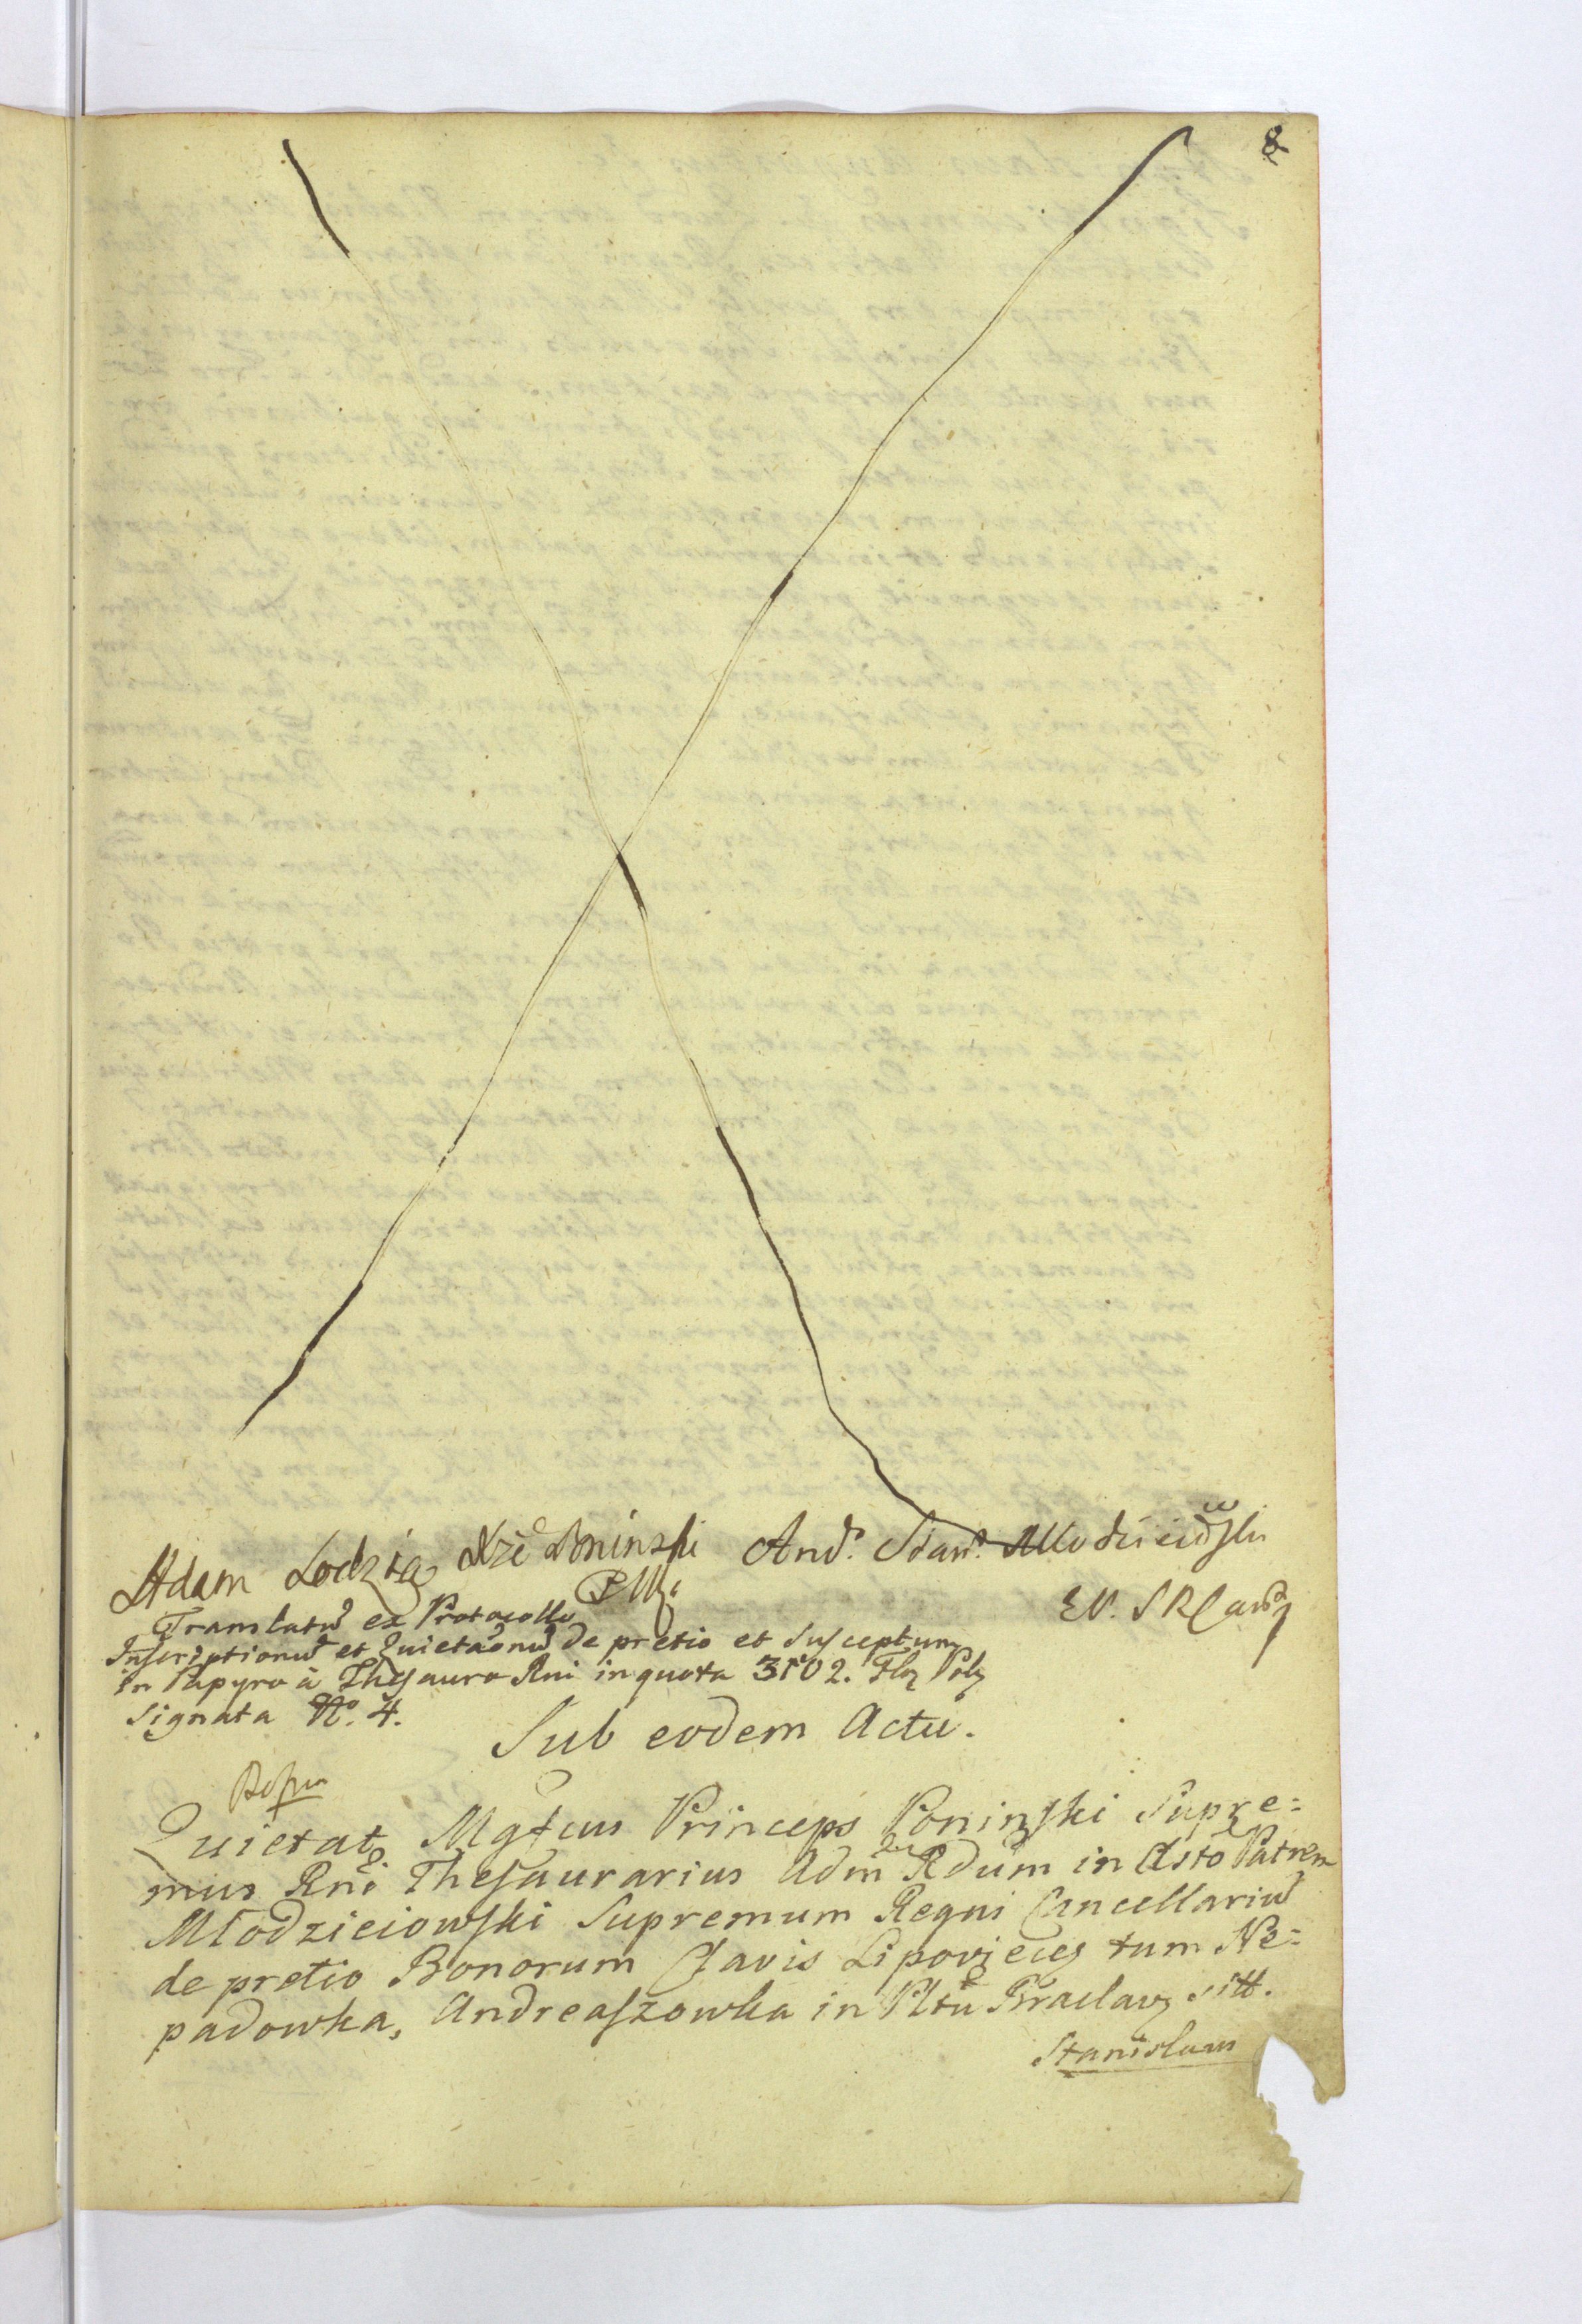 8
Adam Lodzia Xże Poninski And. Stan. Młodzieiowski
Translatū ex Protocollo
Inscriptionū et Quietaõnū de pretio et Susceptum
in Papyro à Thesauro Rni in quota 3102. Flɀ Polɀ
Signata No. 4.
Sub eodem Actu.
Quietat Mgfcus Princeps Poninski Supre=
mus Rni Thesaurarius Adm Rdum in Csto Patrem
Młodzieiowski Supremum Regni Cancellariū
de pretio Bonorum Clavis Lipoviecɀ tum Ne=
padowka, Andreaszowka in Pltū Braclavɀ sitt.
Stanislaus